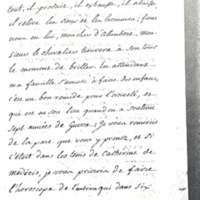 tout, il produit, il échauffe, il abaisse,
il relève les dieux et les hommes; sous
nous ou lui, monsieur d'
sieur le chevalier trouvera à son tour
le moment de briller. en attendant
ma famille s'amuse à faire des enfans,
c'est un bon remède pour l'
qui est en son lieu quand on a soutenu
sept années de Guerre; Je vous remercie
de la part que vous y prenez, et si
c'étoit dans les tems de Catherine de
médicis, je vous prierois de faire
l'horoscope de l'autre qui dans six